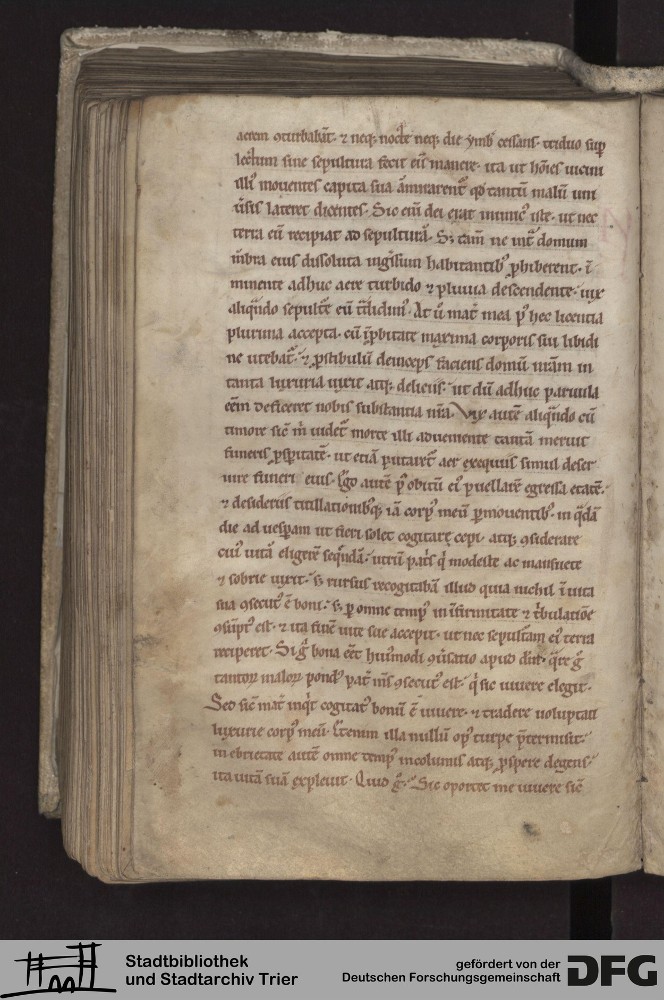 aerem ꝯturbabāt· ⁊ neq; nocte neq; die ymb̄ cessans· triduo sup
lectum sine sepultura fecit eū manere· ita ut hoīes uicini
illi mouentes capita sua āmirarent᷑ qđ tantū malū uni
uersis lateret dicentes· Sic eni dei erat inimic᷒ iste· ut nec
terra eū recipiat ad sepulturā· S; tam̄ ne int᷑ domum
mēbra eius dissoluta ingressum habitantib᷒ ꝓhiberent· ī
minente adhuc aere turbido ⁊ pluuia descendente· uix
aliqn̄do sepult᷑e eū t᷑didim᷒· At ū mat᷑ mea p᷒ hec licentia
plurima accepta· cū īꝓbitate maxima corporis sui libidi
ne utebat᷑· ⁊ ꝓstibulū deinceps faciens domū nr̄am in
tanta luxuria uixit atq; deliciis· ut dū adhuc paruula
eēm deficeret nobis substantia nr̄a· Vix autē aliqn̄do cū
timore sic̄ m̄ uidet᷑ morte illi adueniente tantā meruit
funeris ꝓsperitatē· ut etiā putaret᷑ aer exequiis simul deser
uire funeri eius· Ego autē p᷒ obitū ei᷒ puellarē egressa etatē·
⁊ desideriis titillationibusq; iā corp᷒ meū ꝑmouentib᷒· in qͣdā
die ad uesꝑam ut fieri solet cogitare cepi· atq; ꝯsiderare
cui᷒ uitā eligere seqn̄dā· utrū pat᷑s q̄ modeste ac mansuete
⁊ sobrie uixit· s; rursus recogitabā illud quia nichil ī uita
sua ꝯsecut᷒ ē boni· s; ꝑ omne temp᷒ in īfirmitate ⁊ t᷑bulatiōe
ꝯsūpt᷒ est· ⁊ ita finē uite sue accepit· ut nec sepultam ei᷒ terra
reciperet· Si g̊ bona eēt hui᷒modi ꝯuersatio apud dn̄m· qͣre g̊
tantoꝝ maloꝝ pond᷒ pat᷑ m̄s ꝯsecut᷒ est· q̄ sic uiuere elegit·
Sed sic̄ mat᷑ inqͥt cogitat᷒ bonū ē uiuere· ⁊ tradere uoluptati
luxurie corp᷒ meū· Etenim illa nullū op᷒ turpe p̄termisit·
in ebrietate autē omne temp᷒ incolumis atq; ꝓspere degens·
ita uitā suā expleuit· Quid g̊· Sic oportet me uiuere sic̄
Stadtbibliothek
und Stadtarchiv Trier
gefördert von der
Deutschen Forschungsgemeinschaft
DFG